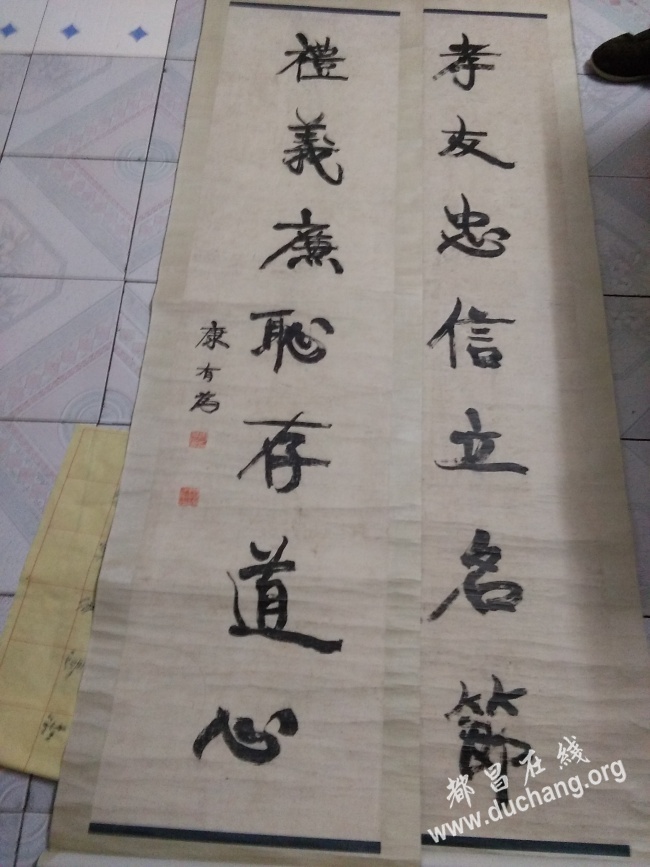 孝友忠信立名節
禮義廉恥存道心
康有為
都昌在线
www.duchang.org